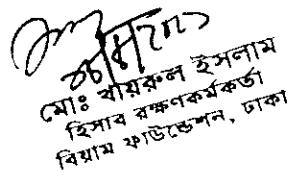 মোঃ খায়রুল ইসলাম
হিসাব রক্ষণকর্মকর্তা
বিয়াম ফাউন্ডেশন, ঢাকা